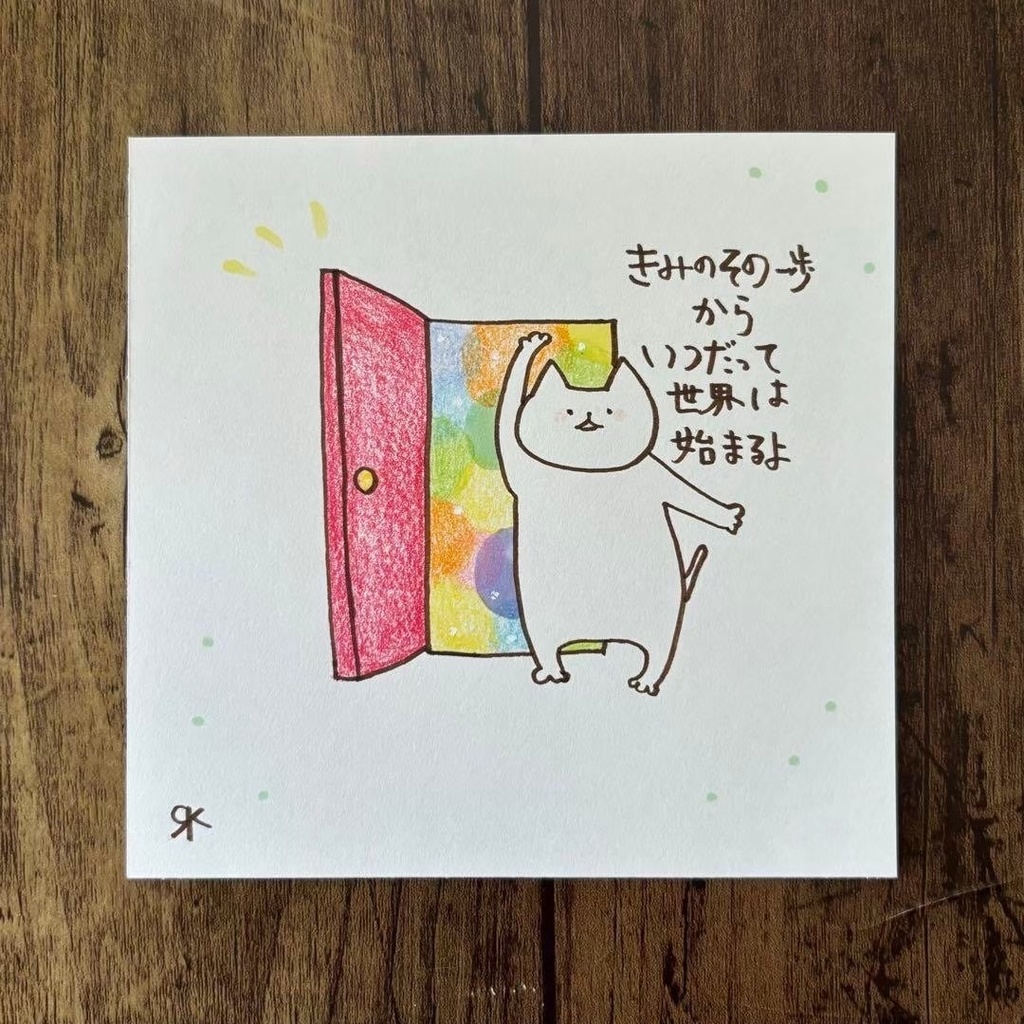 きみのその一歩
から
いつだって
世界は
始まるよ